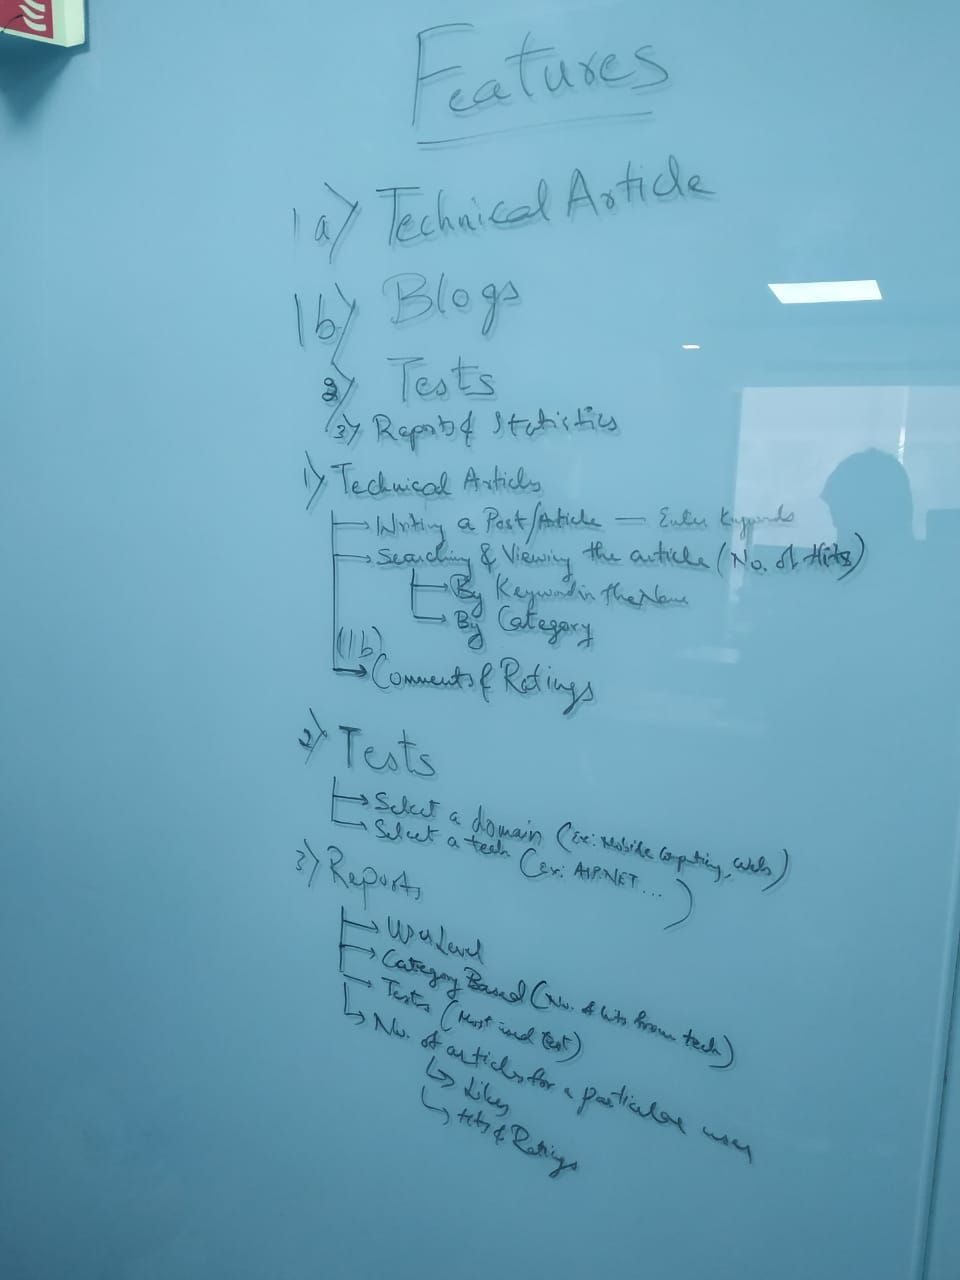 Features
1a) Technical Article
1b) Blogs
2) Tests
3) Reports & Statistics
1) Technical Articles
→ Writing a Post/Article — Enter Keywords
→ Searching & Viewing the article (No. of Hits)
→ By Keyword in the Name
→ By Category
(1b)
→ Comments & Ratings
2) Tests
→ Select a domain (Ex: Mobile Computing, Web)
→ Select a tech (Ex: ASP.NET ...)
3) Reports
→ User Level
→ Category Based (No. of hits from tech)
→ Tests (Most used test)
→ No. of articles for a particular user
↳ Likes
↳ Hits & Ratings